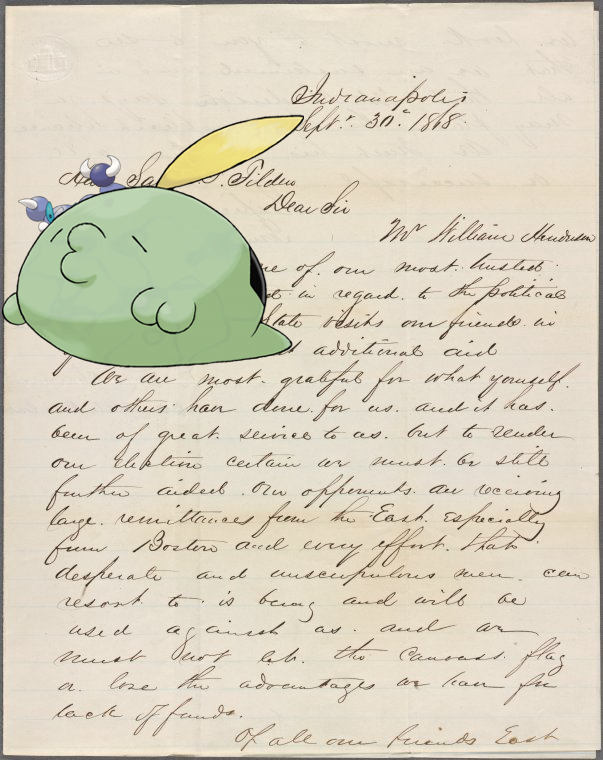 Indianapolis
Sept. 30th 1868.
Hon Sa J. Tilden
Dear Sir
Mr William Henderson
one of our most trusted
in regard to the political
State visits our friends in
additional aid
We are most grateful for what yourself.
and others have done for us. and it has.
been of great service to us. but to render
our election certain we must be still
further aided. Our opponents are receiving
large remittances from the East. especially
from Boston and every effort. that
desperate and unscrupulous men. can
resort to is being and will be
used against us. and we
must not let the canvass flag
or lose the advantages we have for
lack of funds.
Of all our friends East